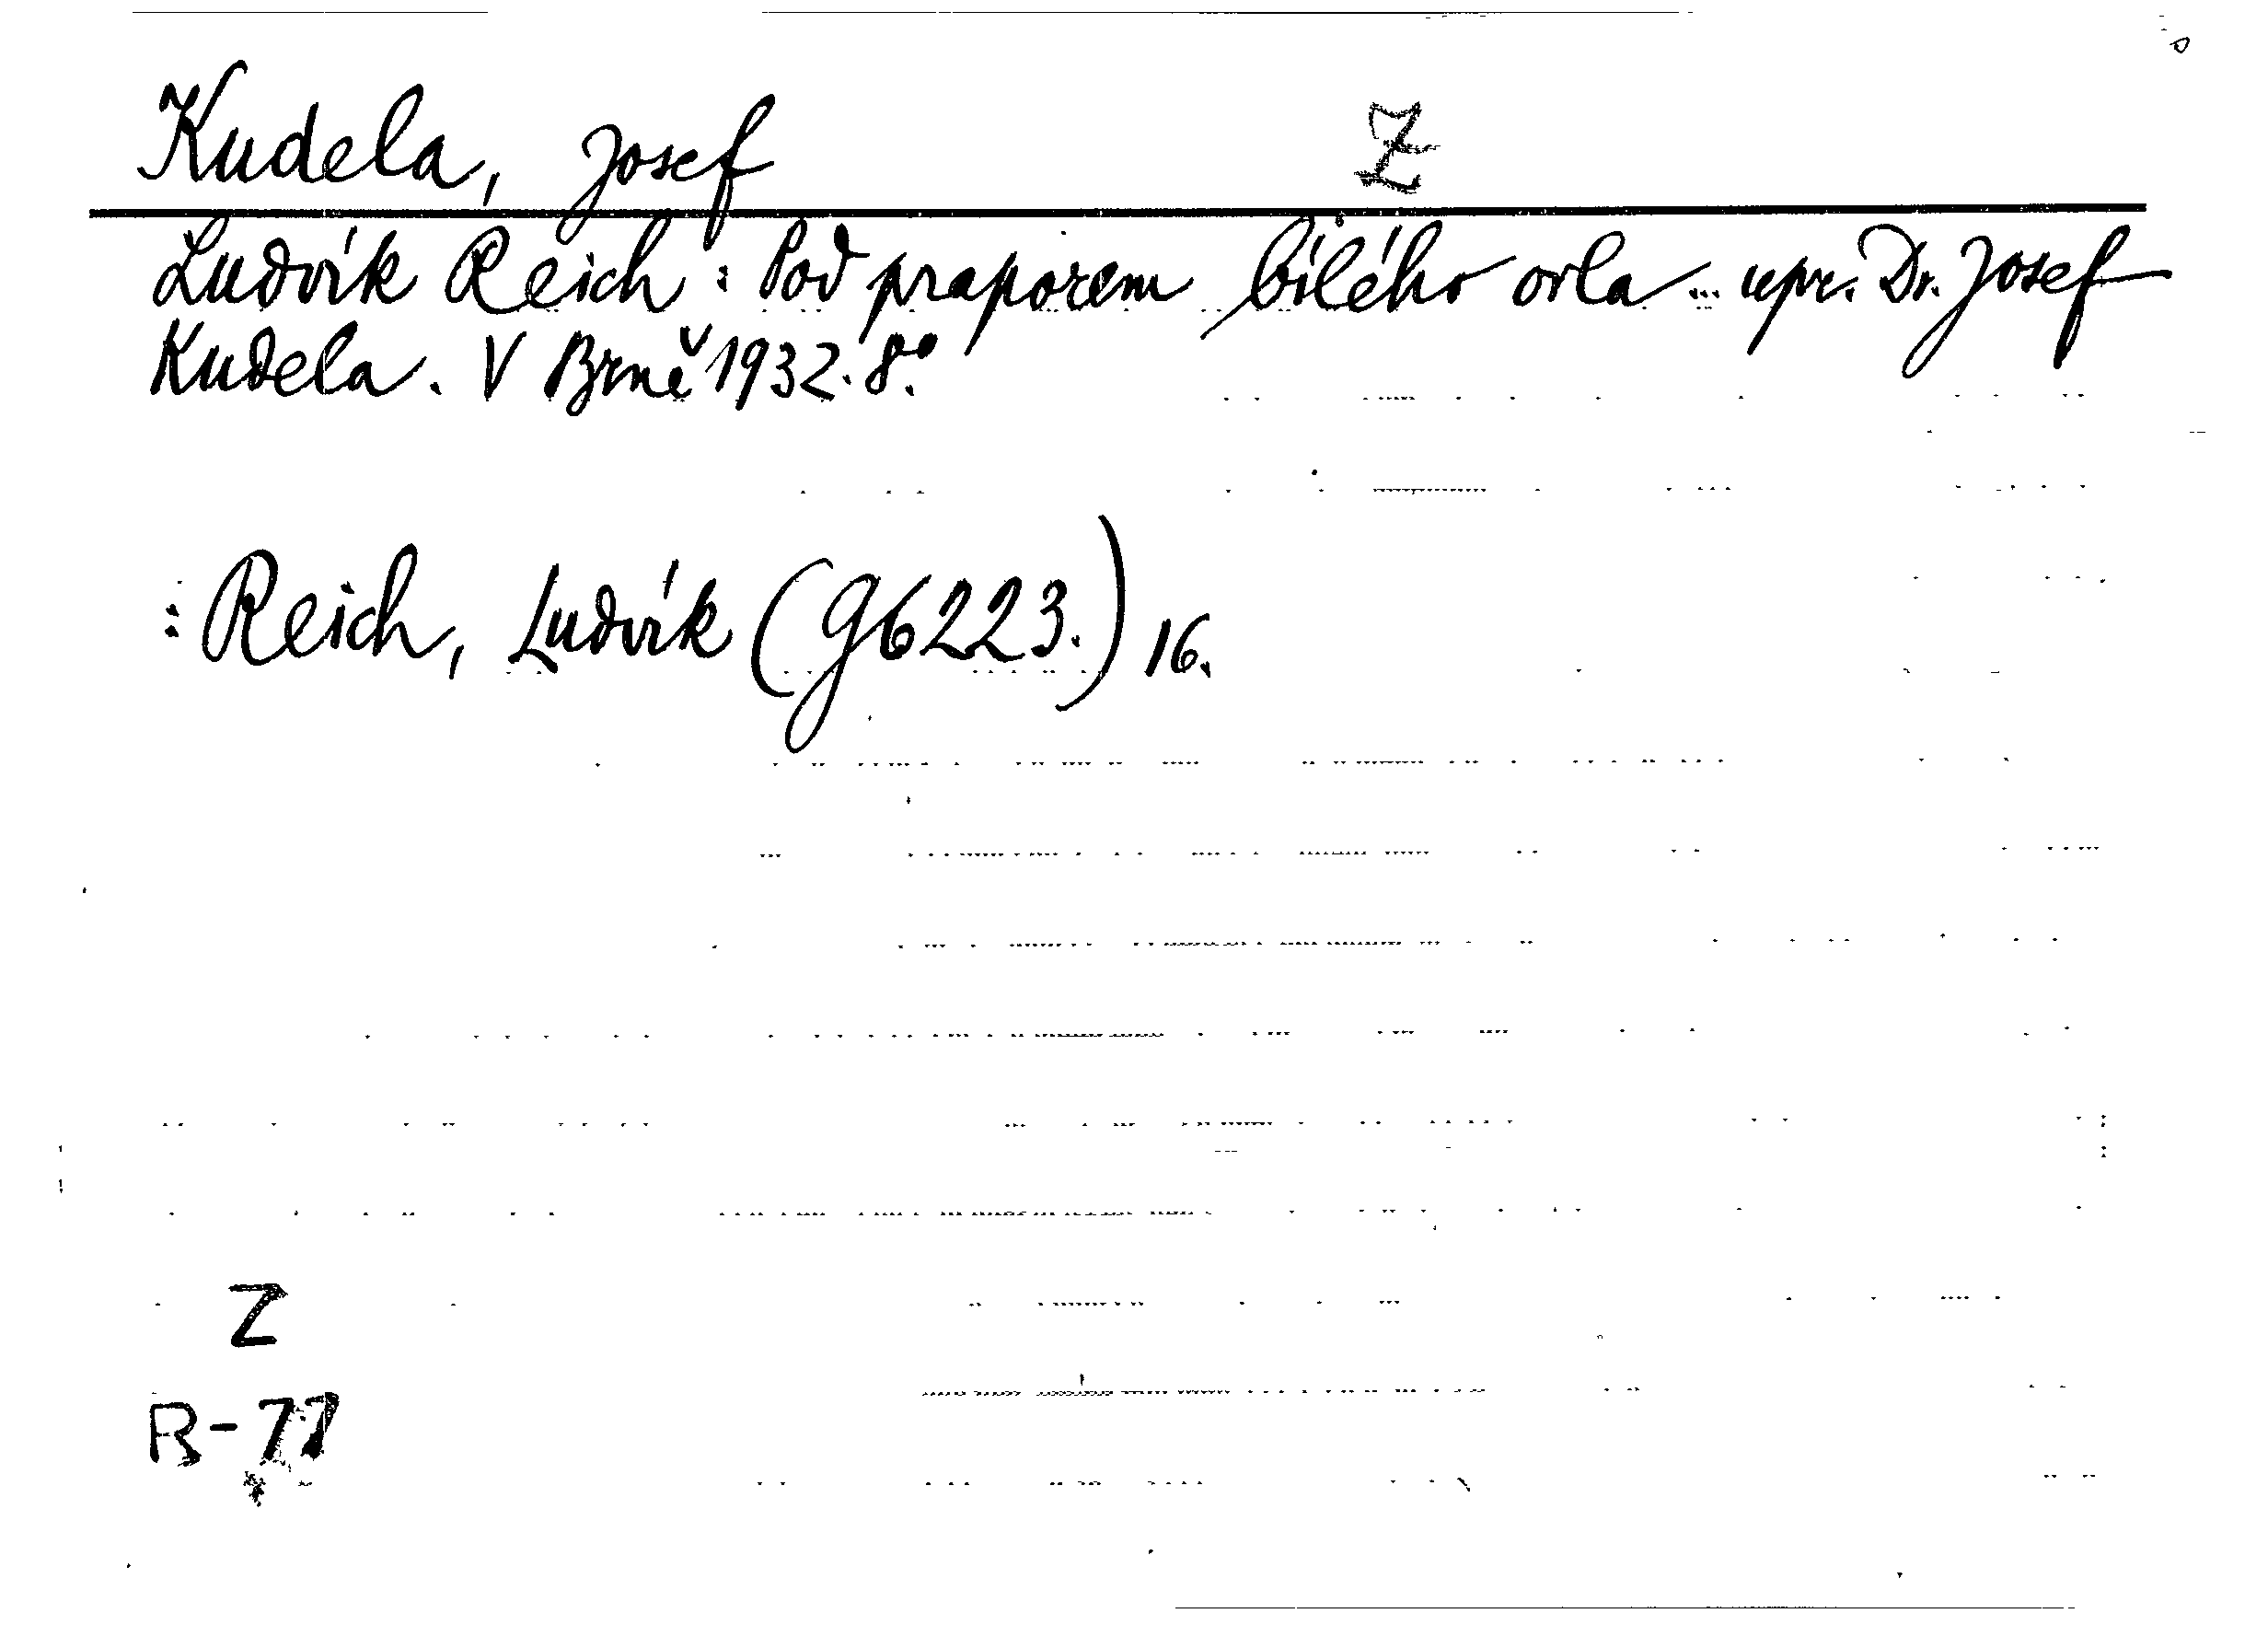 Kudela, Josef Z
Ludvík Reich: Pod praporem bílého orla... upr. Dr. Josef
Kudela. V Brně 1932. 8°.
: Reich, Ludvík (g6223.) 16.
Z
R-77